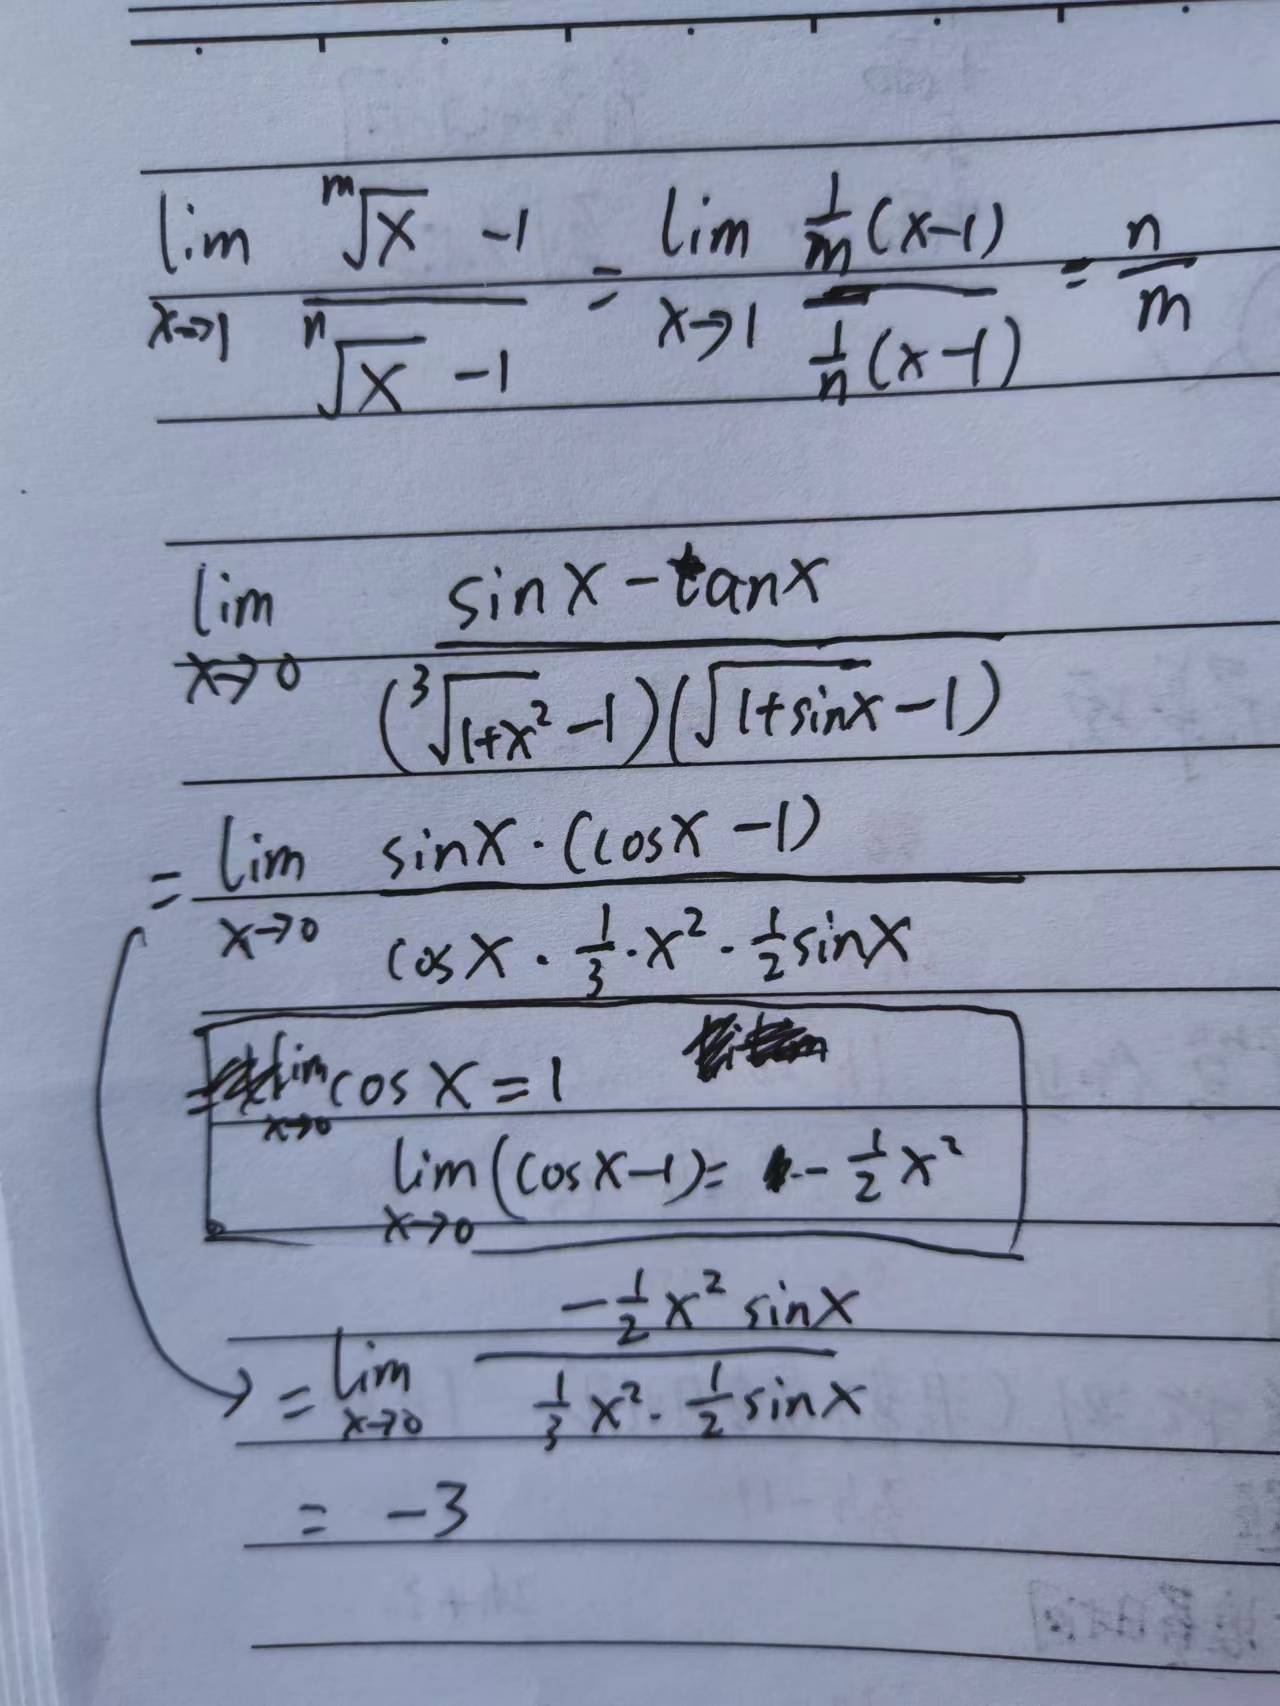 lim x→1 (ᵐ√x - 1)/(ⁿ√x - 1) = lim x→1 (1/m (x-1))/(1/n (x-1)) = n/m
lim x→0 (sinx - tanx)/((³√(1+x²) - 1)(√(1+sinx) - 1))
= lim x→0 (sinx · (cosx - 1))/(cosx · 1/3 · x² · 1/2 sinx)
lim x→0 cosx = 1
lim x→0 (cosx - 1) = - 1/2 x²
= lim x→0 (-1/2 x² sinx)/(1/3 x² · 1/2 sinx)
= -3